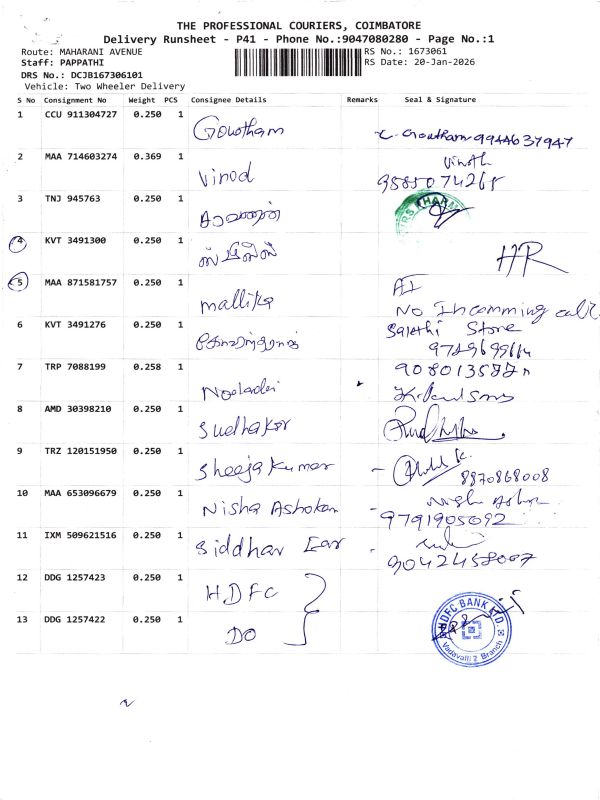 THE PROFESSIONAL COURIERS, COIMBATORE
Delivery Runsheet - P41 - Phone No.:9047080280 - Page No.:1
Route: MAHARANI AVENUE RS No.: 1673061
Staff: PAPPATHI RS Date: 20-Jan-2026
DRS No.: DCJB167306101
Vehicle: Two Wheeler Delivery
S No Consignment No Weight PCS Consignee Details Remarks Seal & Signature
1 CCU 911304727 0.250 1 Gowtham 9944637947
2 MAA 714603274 0.369 1 Vinod Vinoth
9585074265
3 TNJ 945763 0.250 1 சரவணன்
4 KVT 3491300 0.250 1 HR
5 MAA 871581757 0.250 1 mallika AI
No Incomming call
6 KVT 3491276 0.250 1 Store
7 TRP 7088199 0.258 1
8 AMD 30398210 0.250 1 Sudhakar
9 TRZ 120151950 0.250 1 Sheeja Kumar
8870868008
10 MAA 653096679 0.250 1 Nisha Ashokan
9791905092
11 IXM 509621516 0.250 1 Siddhar
9042458007
12 DDG 1257423 0.250 1 HDFC
13 DDG 1257422 0.250 1 DO HDFC BANK LTD.
Vadavalli 2 Branch